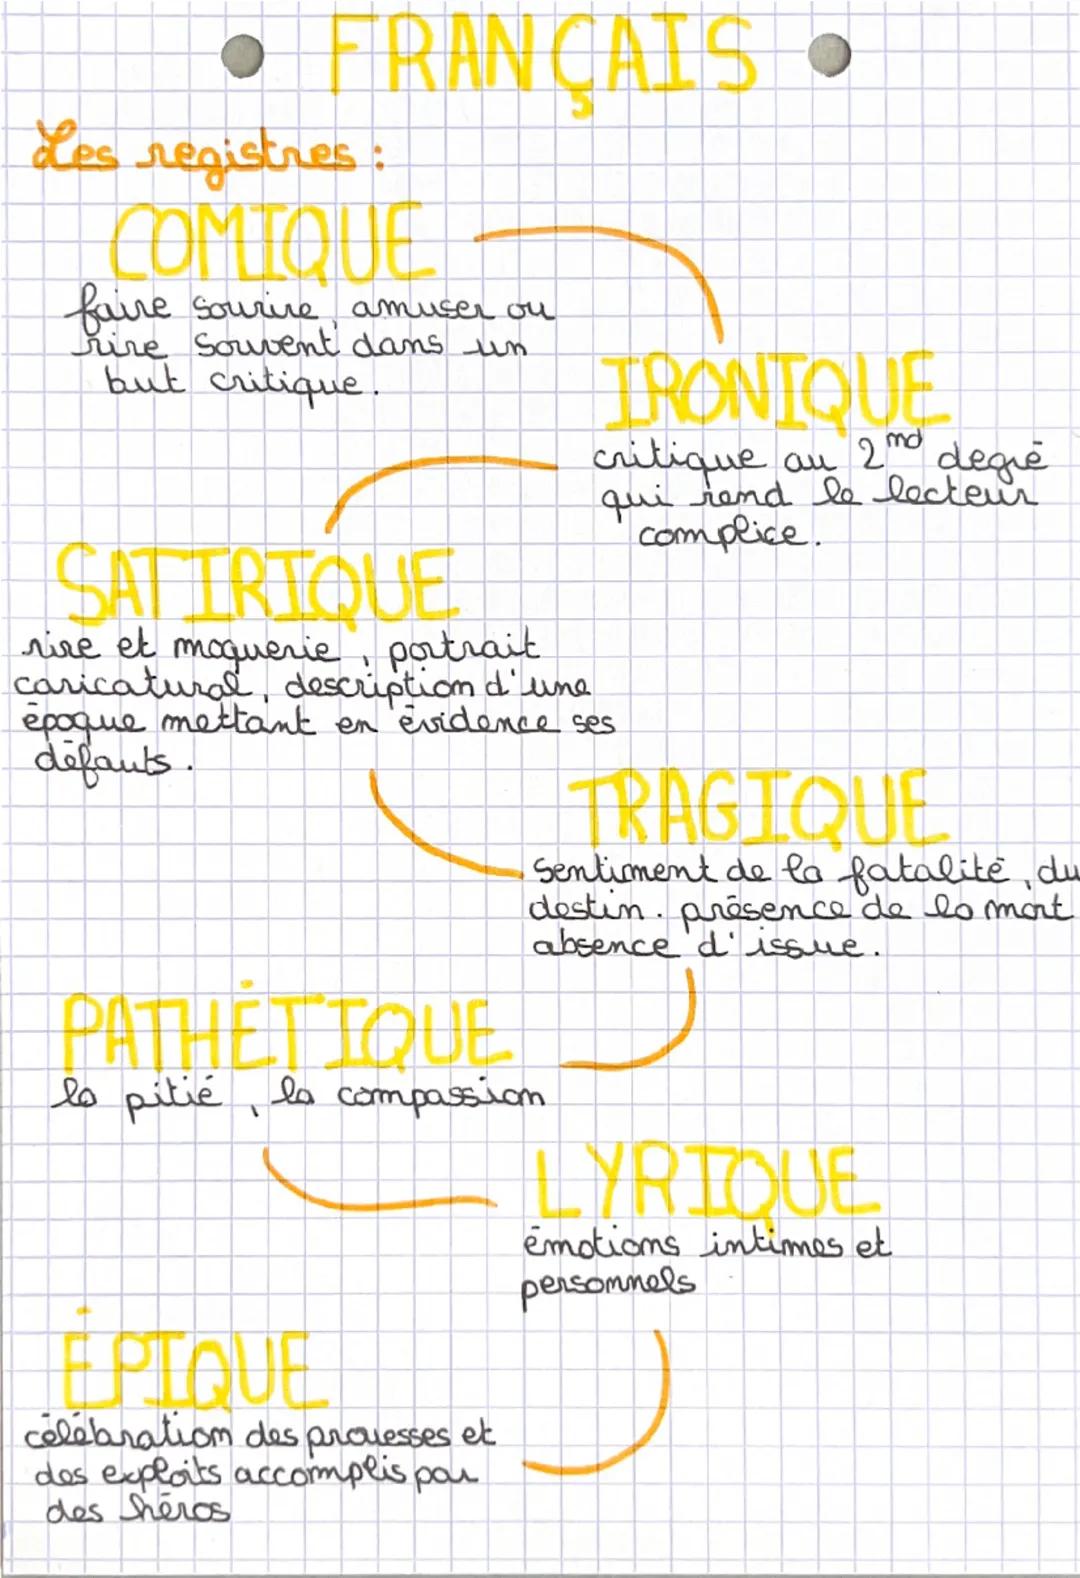 FRANÇAIS
Les registres :
COMIQUE
faire sourire, amuser ou
rire souvent dans un
but critique.
IRONIQUE
critique au 2nd degré
qui rend le lecteur
complice.
SATIRIQUE
rire et moquerie, portrait
caricatural, description d'une
époque mettant en évidence ses
défauts.
TRAGIQUE
Sentiment de la fatalité, du
destin. présence de la mort
absence d'issue.
PATHÉTIQUE
la pitié, la compassion
LYRIQUE
émotions intimes et
personnels
ÉPIQUE
célébration des prouesses et
des exploits accomplis par
des héros